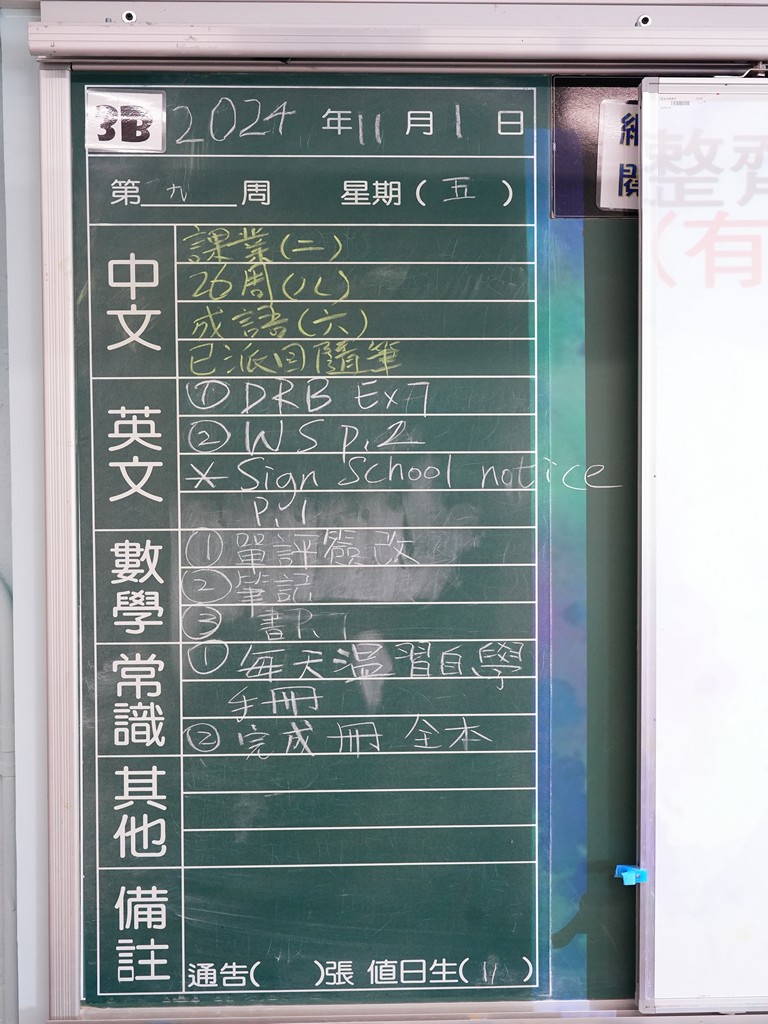 3B 2024年11月1日
第九周 星期(五)
中文
課業(二)
26周(八)
成語(六)
已派回隨筆
英文
① DRB Ex 7
② WS p.2
* Sign School notice
P.1
數學
① 單評簽改
② 筆記
③ 書P.
常識
① 每天溫習自學
手冊
② 完成冊全本
其他
備註
通告( )張 值日生(11)
整齊
(有